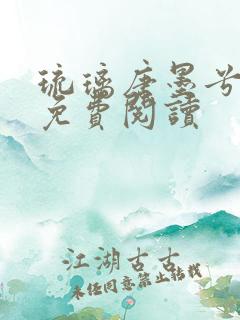 琉璃唐墨兮
免費閱讀
江湖古古
未經同意禁止轉載